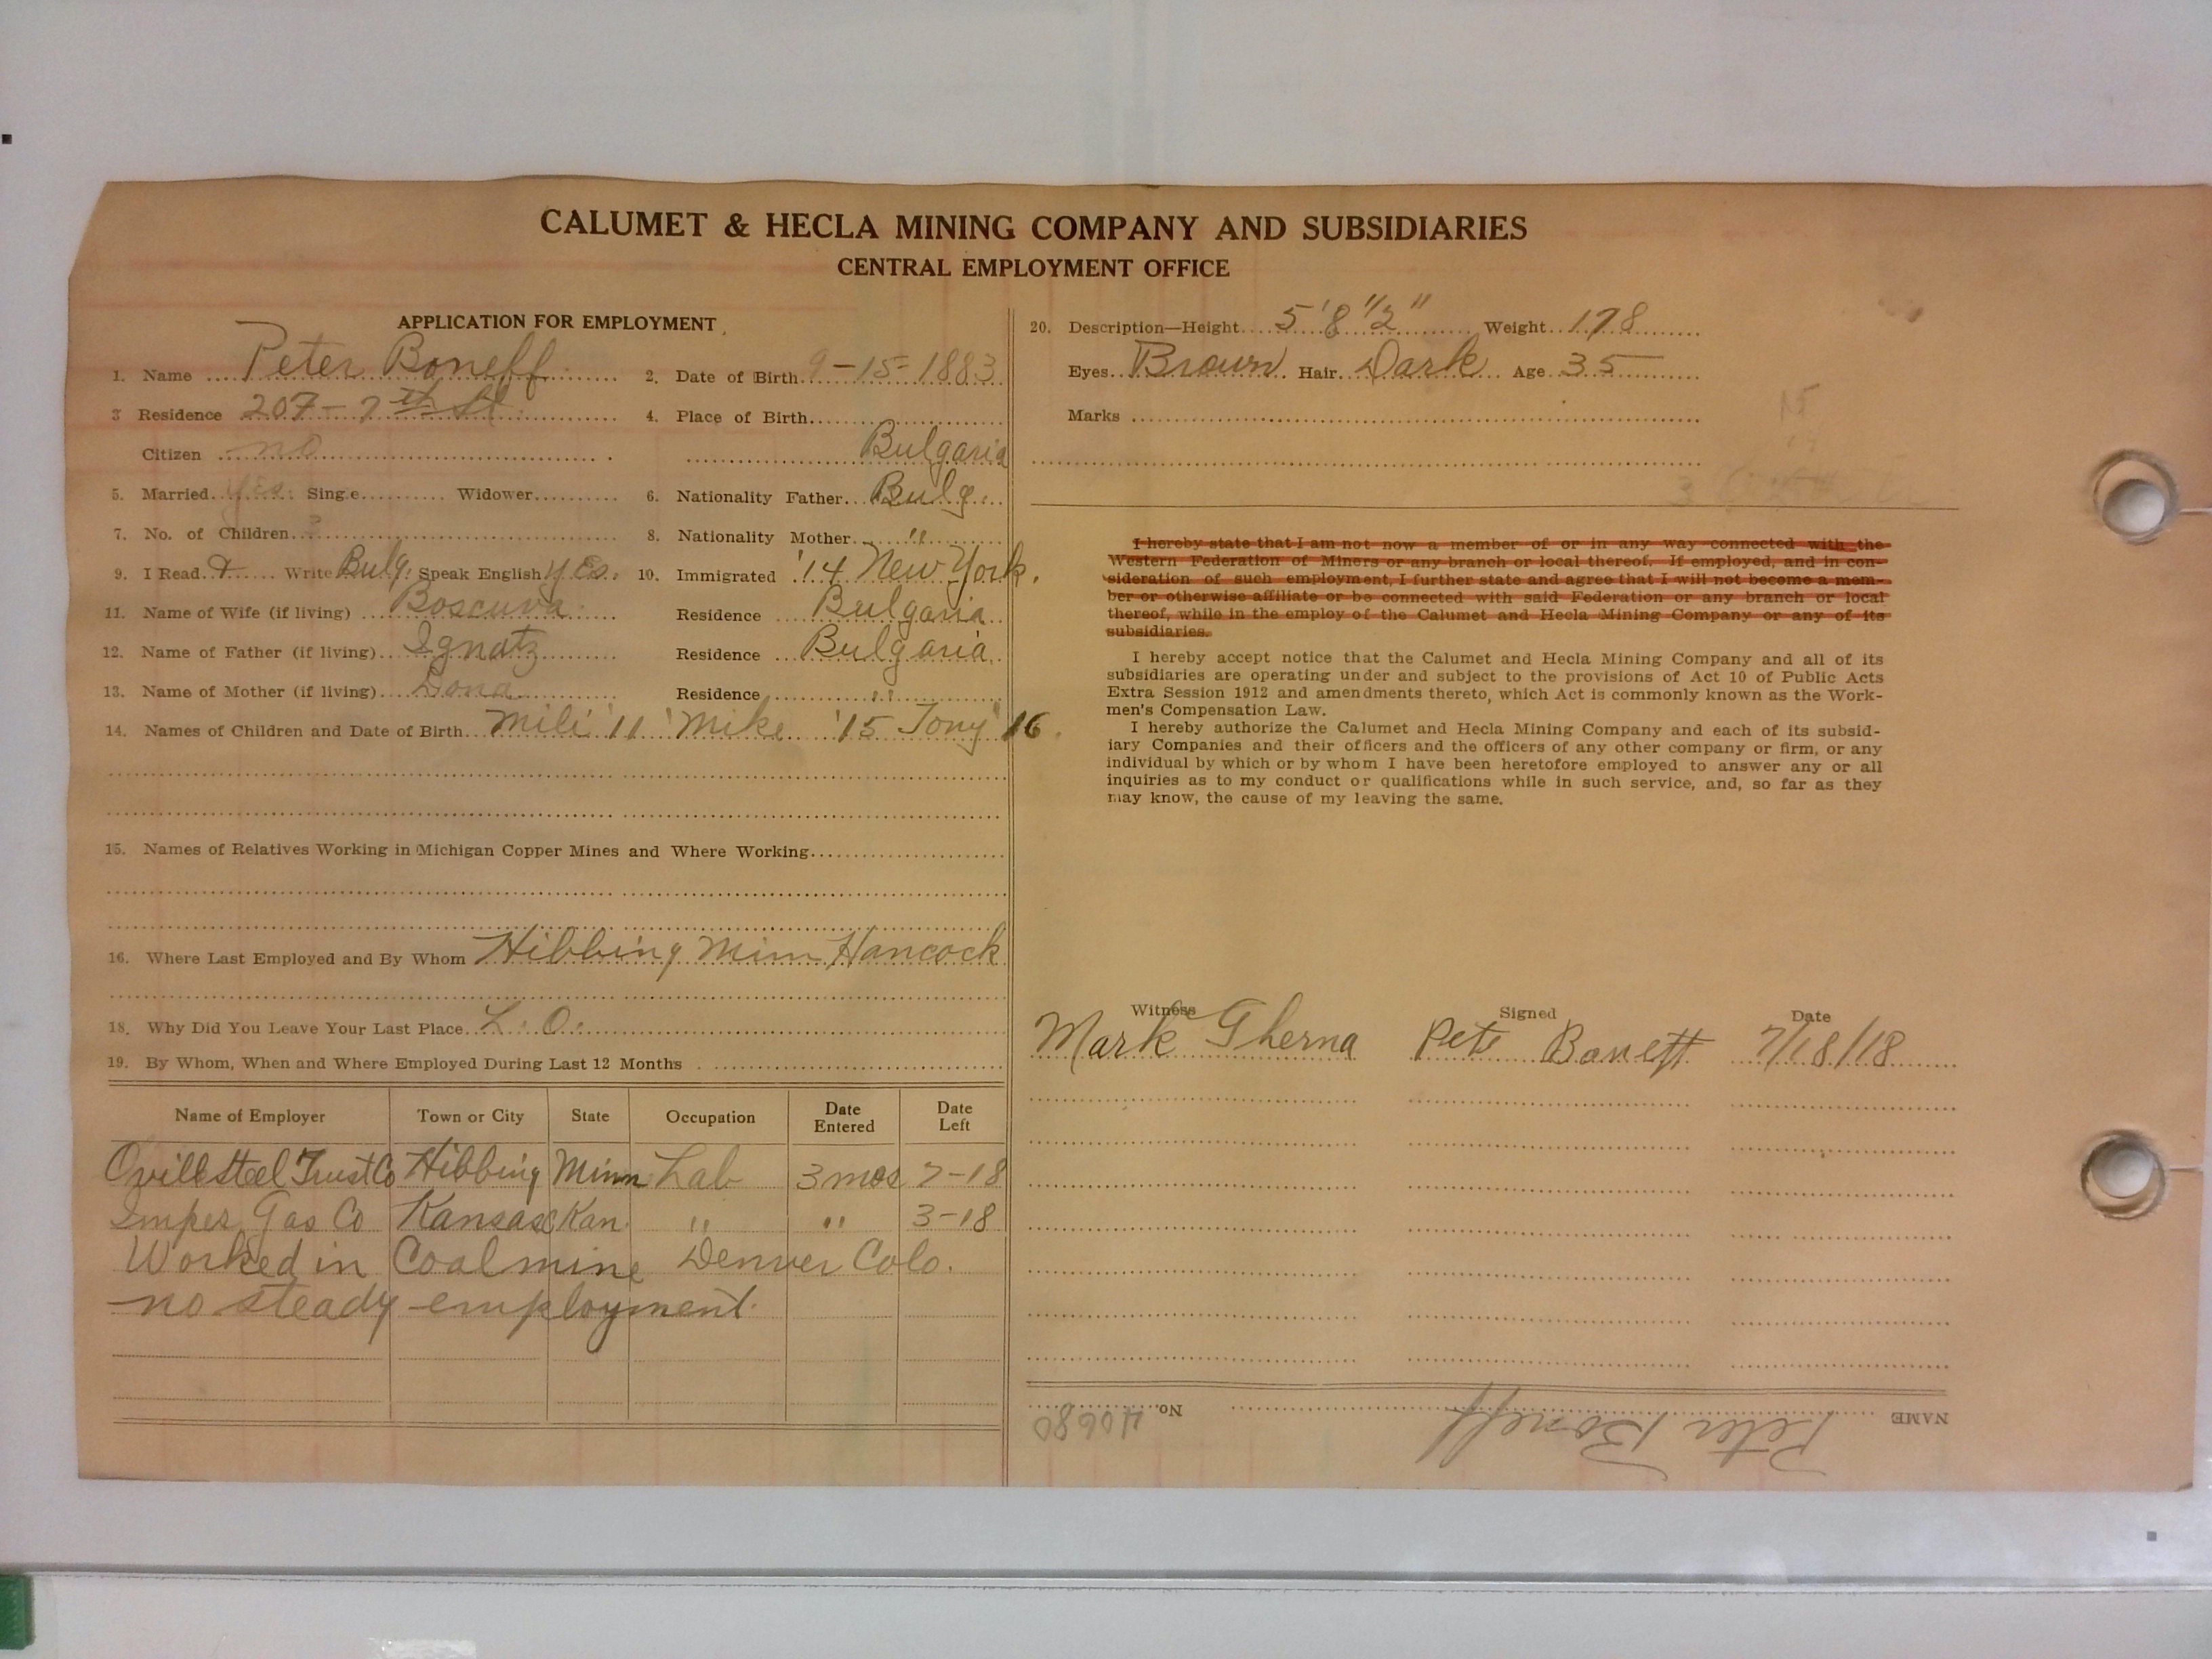 CALUMET & HECLA MINING COMPANY AND SUBSIDIARIES
CENTRAL EMPLOYMENT OFFICE
APPLICATION FOR EMPLOYMENT
1. Name Peter Boneff 2. Date of Birth 9-15-1883
3 Residence 207-7th St. 4. Place of Birth
Citizen no Bulgaria
5. Married yes. Single Widower 6. Nationality Father Bulg.
7. No. of Children 3 8. Nationality Mother "
9. I Read & Write Bulg. Speak English yes. 10. Immigrated '14 New York.
11. Name of Wife (if living) Boscuva Residence Bulgaria
12. Name of Father (if living) Ignatz Residence Bulgaria
13. Name of Mother (if living) Dona Residence "
14. Names of Children and Date of Birth Mili '11 Mike '15 Tony '16.
15. Names of Relatives Working in Michigan Copper Mines and Where Working
16. Where Last Employed and By Whom Hibbing Minn Hancock
18. Why Did You Leave Your Last Place L. O.
19. By Whom, When and Where Employed During Last 12 Months
Name of Employer Town or City State Occupation Date Entered Date Left
Steel Trust Co Hibbing Minn Lab 3 mos 7-18
Imper. Gas Co Kansas C Kan. " " 3-18
Worked in Coal mine Denver Colo.
no steady employment.
20. Description—Height 5'8 1/2" Weight 178
Eyes Brown Hair Dark Age 35
Marks
I hereby state that I am not now a member of or in any way connected with the
Western Federation of Miners or any branch or local thereof. If employed, and in con-
sideration of such employment, I further state and agree that I will not become a mem-
ber or otherwise affiliate or be connected with said Federation or any branch or local
thereof, while in the employ of the Calumet and Hecla Mining Company or any of its
subsidiaries.
I hereby accept notice that the Calumet and Hecla Mining Company and all of its
subsidiaries are operating under and subject to the provisions of Act 10 of Public Acts
Extra Session 1912 and amendments thereto, which Act is commonly known as the Work-
men's Compensation Law.
I hereby authorize the Calumet and Hecla Mining Company and each of its subsid-
iary Companies and their officers and the officers of any other company or firm, or any
individual by which or by whom I have been heretofore employed to answer any or all
inquiries as to my conduct or qualifications while in such service, and, so far as they
may know, the cause of my leaving the same.
Witness Signed Date
Mark Gherna Pete Boneff 7/18/18
NAME Peter Boneff No. 40680